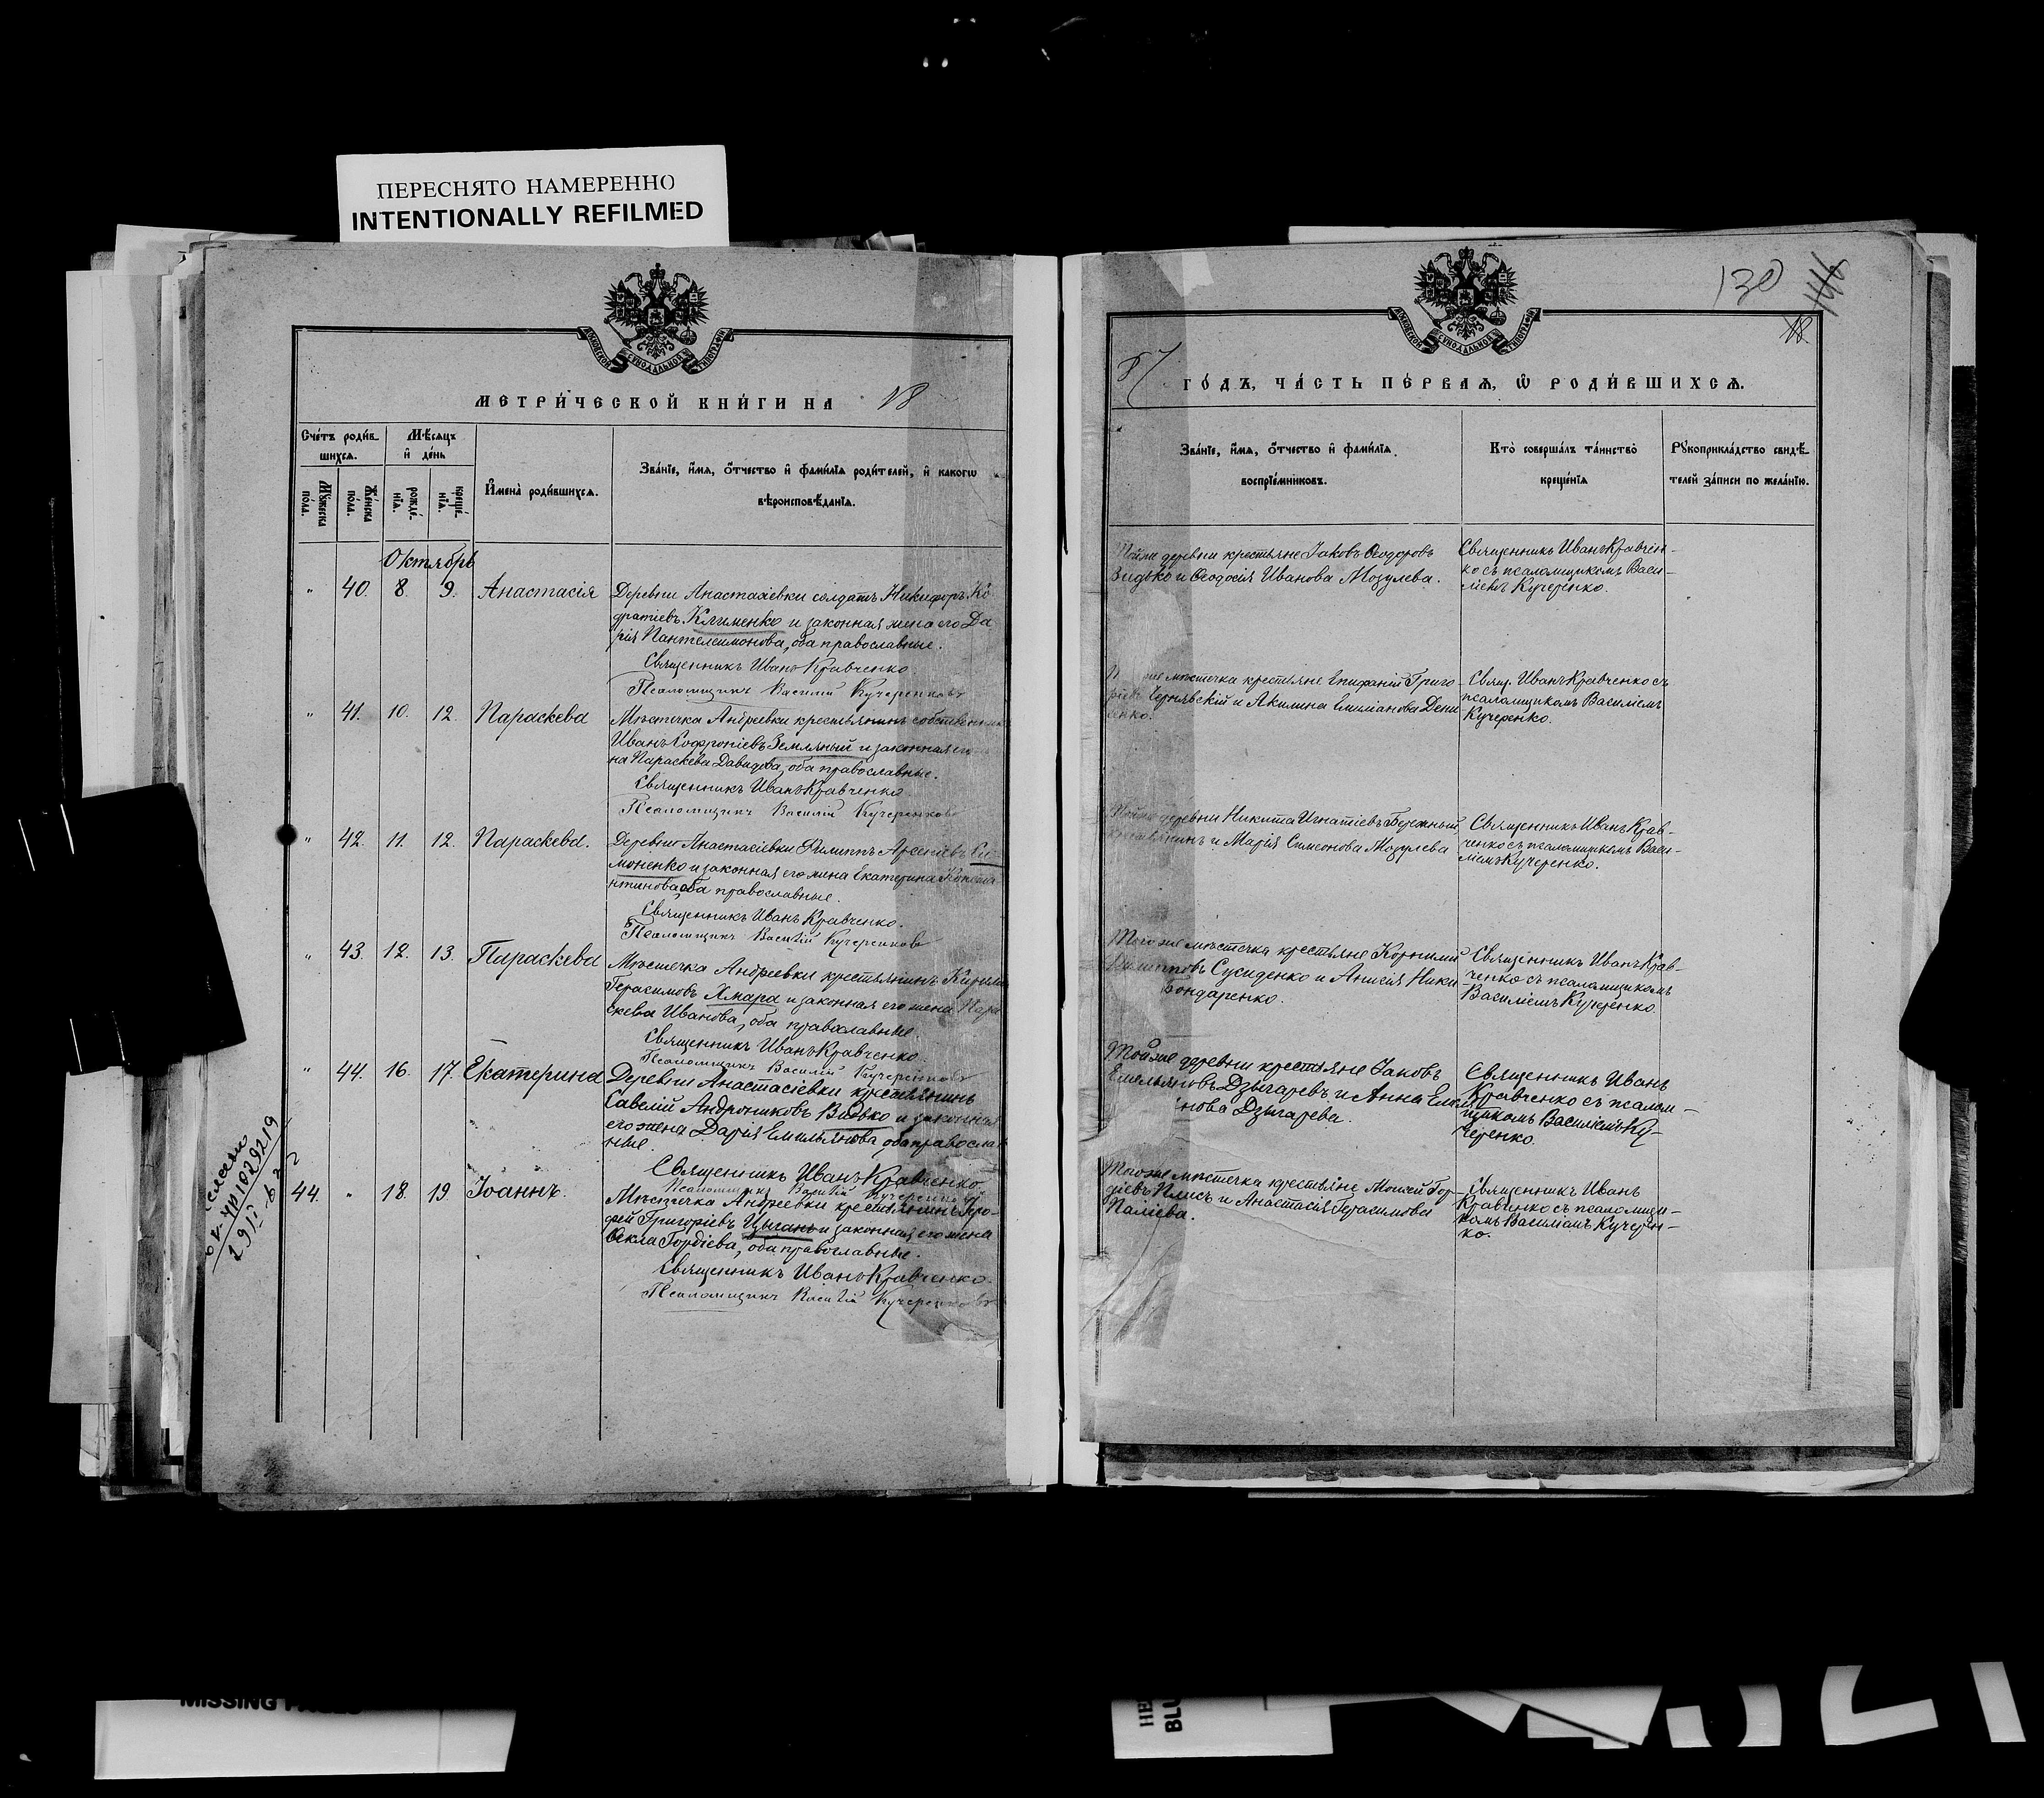 ПЕРЕСНЯТО НАМЕРЕННО
INTENTIONALLY REFILMED
МОСКОВСКОЙ СѴНОДАЛЬНОЙ ТИПОГРАФІИ
МЕТРИ́ЧЕСКОЙ КНИ́ГИ НА 18
Сче́тъ роди́в-
шихся.
Мѣ́сяцъ
и҆ де́нь
Мꙋ́жеска
по́ла.
Же́нска
по́ла.
рожде́-
нїѧ.
креще́-
нїѧ.
И҆мена̀ роди́вшихсѧ.
Зва́нїе, и҆́мѧ, ѻ҆́тчество и҆ фами́лїѧ роди́телей, и҆ како́гѡ
вѣроисповѣ́данїѧ.
Октябрь
" 40. 8. 9. Анастасія
Деревни Анастасіевки солдатъ Никифоръ Ко
дратіевъ Клименко и законная жена его Да
рія Пантелеимонова, оба православные.
Священникъ Иванъ Кравченко
Псаломщикъ Василій Кучеренковъ
" 41. 10. 12. Параскева
Мѣстечка Андреевки крестьянинъ
Иванъ Софроніевъ Земляный и законная
на Параскева Давидова, оба православные.
Священникъ Иванъ Кравченко
Псаломщикъ Василій Кучеренковъ
" 42. 11. 12. Параскева.
Деревни Анастасіевки Филиппъ Арсеніевъ Си-
моненко и законная его жена Екатерина Конста
нтинова, оба православные.
Священникъ Иванъ Кравченко.
Псаломщикъ Василій Кучеренковъ
" 43. 12. 13. Параскева
Мѣстечка Андреевки крестьянинъ
Герасимовъ Хмара и законная его жена Пара
скева Иванова, оба православные.
Священникъ Иванъ Кравченко.
Псаломщикъ Василій Кучеренковъ
" 44. 16. 17. Екатерина
Деревни Анастасіевки крестьянинъ
Савелій Андрониковъ Видько и законная
его жена Дарія Емельянова, оба правосла
ные.
Священникъ Иванъ Кравченко
Псаломщикъ Василій
44. " 18. 19 Іоаннъ.
Мѣстечка Андреевки крестьянинъ
фей Григоріевъ Цыганъ и законная его жена
Ѳекла Гордіева, оба православные.
Священникъ Иванъ Кравченко
Псаломщикъ Василій Кучеренковъ
130
18
87 ГО́ДЪ, ЧА́СТЬ ПЕ́РВАѦ, Ѡ҆ РОДИ́ВШИХСѦ.
МОСКОВСКОЙ СѴНОДАЛЬНОЙ ТИПОГРАФІИ
Зва́нїе, и҆́мѧ, ѻ҆́тчество и҆ фами́лїѧ
воспрїе́мниковъ.
Кто̀ соверша́лъ та́инство
креще́нїѧ
Рꙋкоприкла́дство свидѣ́-
телей за́писи по жела́нїю.
Тойже деревни крестьяне Іаковъ Ѳеодоровъ
Видько и Ѳеодосія Иванова Мозулева.
Священникъ Иванъ Кравчен-
ко съ псаломщикомъ Васи-
ліемъ Кучеренко.
мѣстечка крестьяне Епифаній Григо
Чернявскій и Акилина Емиліанова Дени
енко.
Свящ. Иванъ Кравченко съ
псаломщикомъ Василіемъ
Кучеренко.
деревни Никита Игнатіевъ Бережный
и Марія Симеонова Мозулева
Священникъ Иванъ Крав-
ченко съ псаломщикомъ Васи-
ліемъ Кучеренко.
Тогоже мѣстечка крестьяне Корнилій
Сусиденко и Анисія Ники
Бондаренко.
Священникъ Иванъ Крав-
ченко съ псаломщикомъ
Василіемъ Кучеренко.
Тойже деревни крестьяне Іаковъ
Емельяновъ Дзыгаревъ и Анна Емел
нова Дзыгарева.
Священникъ Иванъ
Кравченко съ псалом-
щикомъ Василіемъ Ку-
черенко.
Тогоже мѣстечка крестьяне Моисей Гор-
діевъ Плисъ и Анастасія Герасимова
Паліева.
Священникъ Иванъ
Кравченко съ псаломщи-
комъ Василіемъ Кучерен-
ко.
MISSING PAGES